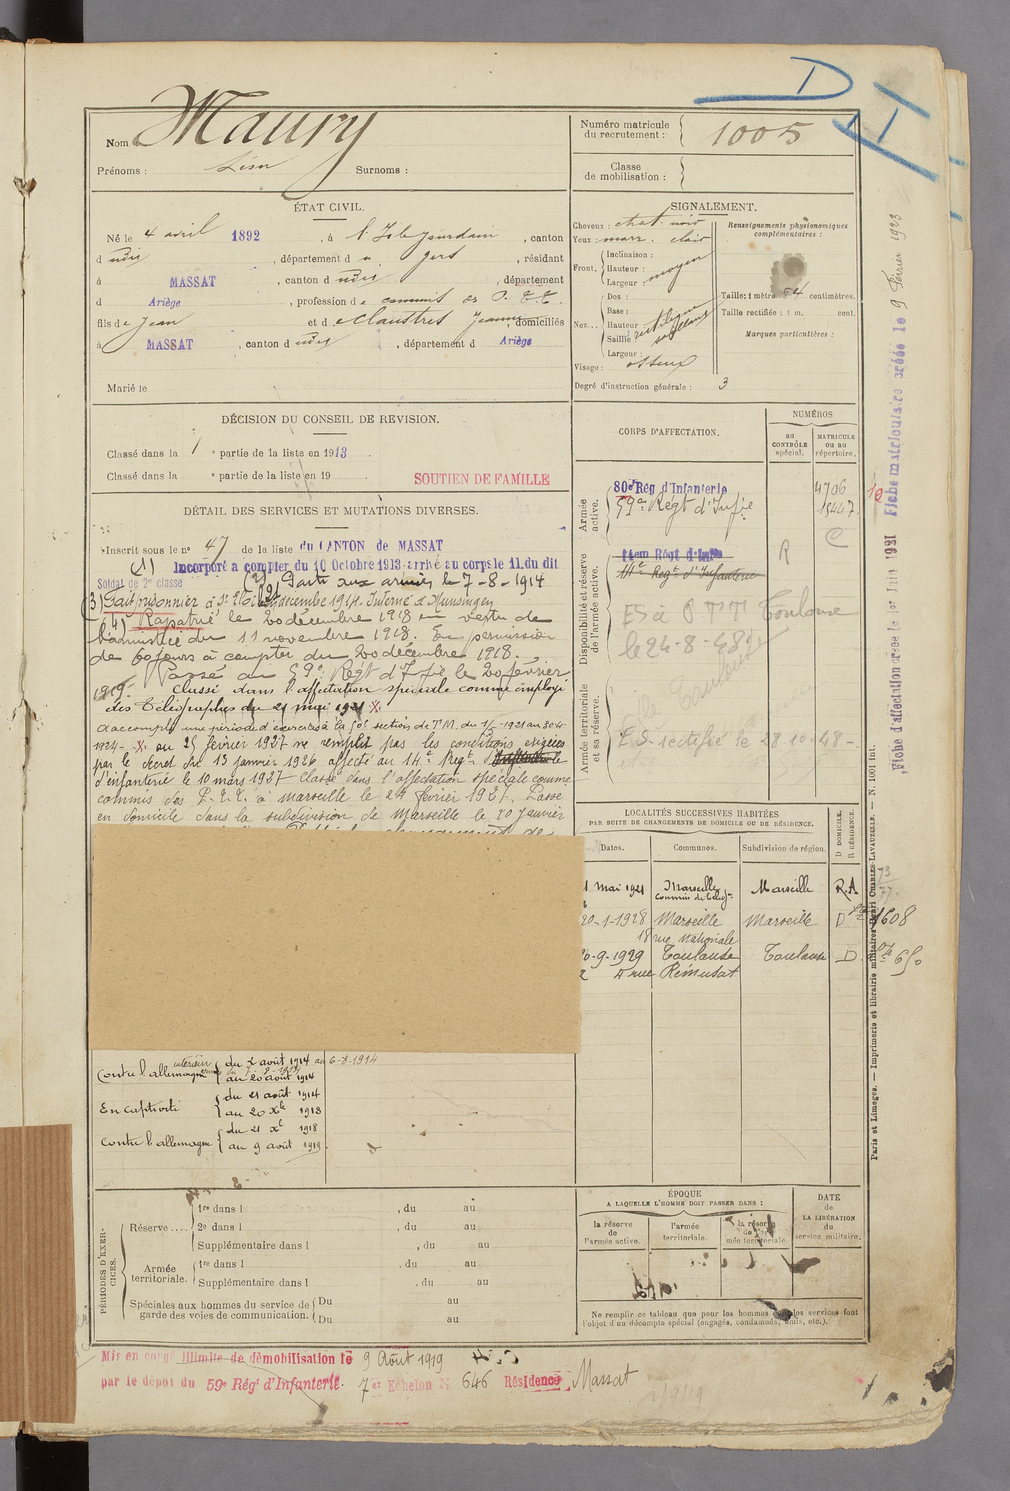 D
T
Nom Maury
Prénoms : Léon Surnoms :
Numéro matricule du recrutement : 1005
Classe de mobilisation :
ÉTAT CIVIL.
Né le 4 avril 1892, à l'Isle Jourdain, canton
d udis, département d u gers, résidant
à MASSAT, canton d udis, département
d Ariège, profession de commis des P.T.T.
fils de Jean et de Claustres Jeanne, domiciliés
à MASSAT, canton d udis, département d Ariège
Marié le
SIGNALEMENT.
Cheveux : chat. noir
Yeux : marr. clair
Front. Inclinaison :
Hauteur :
Largeur : moyen
Nez... Dos : rectiligne
Base :
Hauteur :
Saillie :
Largeur :
Visage : osseux
Degré d'instruction générale : 3
Renseignements physionomiques complémentaires :
Taille : 1 mètre 54 centimètres.
Taille rectifiée : 1 m. cent.
Marques particulières :
DÉCISION DU CONSEIL DE REVISION.
Classé dans la 1 e partie de la liste en 1913.
Classé dans la e partie de la liste en 19 .
SOUTIEN DE FAMILLE
DÉTAIL DES SERVICES ET MUTATIONS DIVERSES.
Inscrit sous le n° 47 de la liste du CANTON de MASSAT
(1) Incorporé a compter du 10 Octobre 1913 arrivé au corps le 11 du dit
Soldat de 2e classe (2) Parti aux armées le 7-8-1914
(3) Fait prisonnier à décembre 1914. Interné à Munsingen
(4) Rapatrié le 20 décembre 1918 en vertu de
l'armistice du 11 novembre 1918. En permission
de 60 jours à compter du 20 décembre 1918.
Passé au 59e Régt d'Infie le 20 février
1919. Classé dans l'affectation spéciale comme employé
des Télégraphes du 21 mai 1921 X.
a accompli une période d'exercices à la section de T.M. du
1924 - X. au 25 février 1927 ne remplit pas les conditions exigées
par le decret du 15 janvier 1926 affecté au 14e Regt
d'infanterie le 10 mars 1927 Classé dans l'affectation spéciale comme
commis des P.T.T. à Marseille le 24 février 1927. Passé
en domicile dans la subdivision de Marseille le 20 janvier
CORPS D'AFFECTATION.
NUMÉROS
au CONTRÔLE spécial.
MATRICULE ou au répertoire.
Armée active.
80e Rég d'Infanterie 4706
59e Régt d'Infie 15447
Disponibilité et réserve de l'armée active.
14em Régt d'Infie
14e Regt d'Infanterie R C
ES à PTT Toulouse
le 24-8-48
Armée territoriale et sa réserve.
E.S. rectifié le 28-10-48-
LOCALITÉS SUCCESSIVES HABITÉES
PAR SUITE DE CHANGEMENTS DE DOMICILE OU DE RÉSIDENCE.
Dates. Communes. Subdivision de région. D DOMICILE. R RÉSIDENCE.
1 mai 1921 Marseille Marseille R.A
20-1-1928 Marseille Marseille D 1608
18 rue Nationale
6-9-1929 Toulouse Toulouse D. 650
4 rue Rémusat
Contre l'allemagne intérieur du 2 août 1914 au 6-8-1914
au 20 août 1914
En captivité du 21 août 1914
au 20 Xbe 1918
Contre l'allemagne du 21 Xe 1918
au 9 août 1919
PÉRIODES D'EXERCICES.
Réserve.... 1re dans l , du au
2e dans l , du au
Supplémentaire dans l , du au
Armée territoriale. 1re dans l , du au
Supplémentaire dans l , du au
Spéciales aux hommes du service de garde des voies de communication. Du au
Du au
ÉPOQUE
A LAQUELLE L'HOMME DOIT PASSER DANS :
la réserve de l'armée active.
l'armée territoriale.
la réserve de l'armée territoriale.
DATE DE LA LIBÉRATION du service militaire.
Ne remplir ce tableau que pour les hommes dont les services font
l'objet d'un décompte spécial (engagés, condamnés, omis, etc.).
Mis en congé illimité de démobilisation le 9 Août 1919
par le dépôt du 59e Régt d'Infanterie. 7er Echelon N° 646 Résidence Massat
Fiche d'affectation créée le 1er Juin 1921 Fiche matriculaire créée le 9 février 1923
Paris et Limoges. — Imprimerie et librairie militaires Henri CHARLES-LAVAUZELLE. — N. 1001 int.